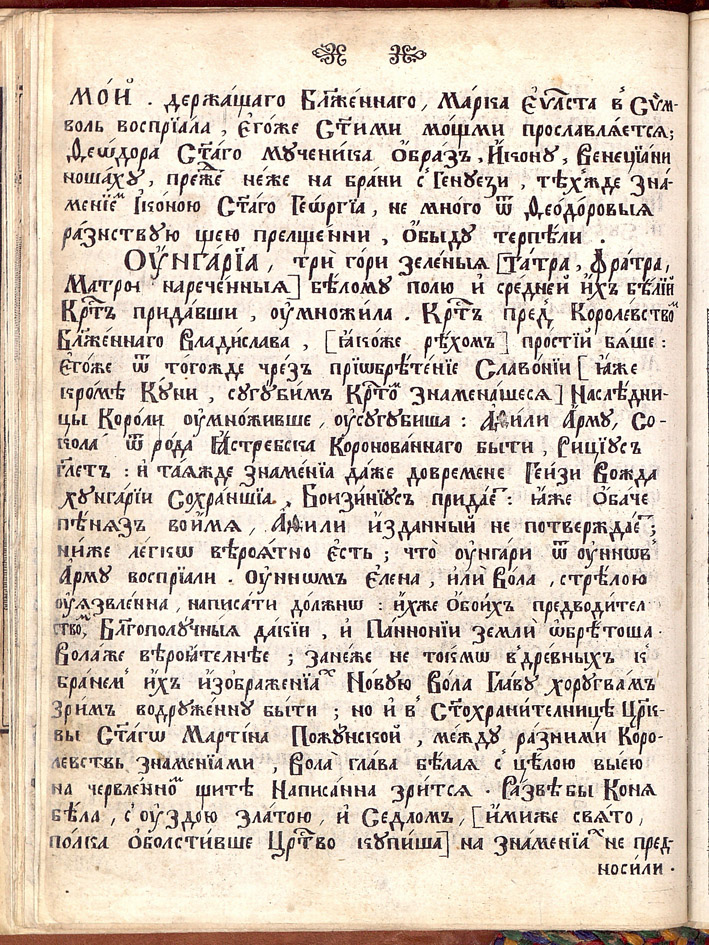 мо́й . держа́щаго Бл҃же́ннаго , Ма́рка Єѵⷢ҇листа в̾ Сѵ́м-
воль воспрїѧ́ла , єго́же Ст҃ы́ми мо́щми прославлѧ́ется ;
Деѡ́дора Ст҃а́го мꙋченика ѻ҆́браз̾ , И҆ко́нꙋ , Венецїа́ни
ноша́хꙋ , пре́жⷣе не́же на бра́ни с̾ Генꙋези , тѣ́хжде зна́-
менїеⷨ Іко́ною Ст҃а́го Геѡ́ргїа , не мно́го ѿ Деодо́ровыѧ
ра́знствꙋющею прелще́нни , ѻ҆би́дꙋ терпѣ́ли .
Оу҆нга́рїа , три́ го́ри зеле́ныѧ [ Татра , Фа́тра ,
Матроⷨ нарече́нныѧ ] бѣ́ломꙋ полю и҆ средней и҆хъ бѣ́лїй
Крⷭ҇тъ прида́вши , оу҆мно́жила . Крⷭ҇тъ предⸯ Короле́вствоⷨ
Бл҃же́ннаго Влади́слава , [ ꙗ҆́коже рѣ́хомъ ] прості́й бѧ́ше :
Єго́же ѿ то́гожде чре́зъ прїѡбрѣте́нїе Славо́нїи [ ꙗ҆́же
кро́мѣ Кꙋ́ни , сꙋгꙋ́бимъ Крⷭ҇то́ⷨ знамена́шесѧ ] Наслѣ́дни-
цы Коро́ли оу҆мно́живше , оу҆сꙋгꙋ́биша : Ати́ли А҆́рмꙋ , Со-
кола́ ѿ ро́да ꙗ҆́стребска Коронова́ннаго быти , Рицїꙋсъ
гл҃етъ : и҆ таѧ́жде зна́менїа да́же довремене Ге́йзи Вожда
хꙋнга́рїи Сохра́ншїа , Боизинїꙋсъ прида́еⷮ : ꙗ҆́же ѻ҆ба́че
пѣ́нѧзъ во и҆́мѧ , Ати́ли и҆зда́нный не потвержда́еⷮ ;
ни́же ле́гкѡ вѣроѧ́тно є҆́сть ; что̀ оу҆нга́ри ѿ оу҆́ннѡвъ
А҆́рмꙋ воспрїѧ́ли . Оу҆́ннѡмъ Єле́на , и҆лѝ Во́ла , стрѣло́ю
оу҆ѧзвле́нна , написа́ти до́лжнѡ : и҆́хже ѻ҆бои́хъ предводи́тел
ствоⷨ , Бл҃гополꙋ́чныѧ да́кїи , и҆ Па́ннонїи земли́ ѡ҆брѣто́ша .
Во́лаже вѣроѧ́телнѣе ; зане́же не то́кмѡ в̾ дре́вныхъ к̾
бра́немⸯ и҆́хъ и҆зображе́нїаⷯ Но́вꙋю Во́ла Гла́вꙋ хорꙋгва́мъ
Зри́мъ водрꙋже́ннꙋ бы́ти ; но и҆ в̾ Ст҃охрани́телницѣ Цр҃к-
вы Ст҃а́гѡ Марті́на Пожꙋ́нской , ме́ждꙋ ра́зними Коро-
ле́вствъ зна́менїами , Вола́ гла́ва бѣ́лаѧ с̾ цѣ́лою вы́ею
на червле́нноⷨ щи́тѣ Напи́санна зри́тсѧ . Ра́звѣ бы Конѧ
бѣ́ла , с̾ оу҆здо́ю злато́ю , и҆ Седло́мъ , [ и҆́миже свѧ́то ,
по́лка ѻ҆болсти́вше Црⷭ҇тво кꙋпи́ша ] на зна́менїаⷯ не пред-
носи́ли .